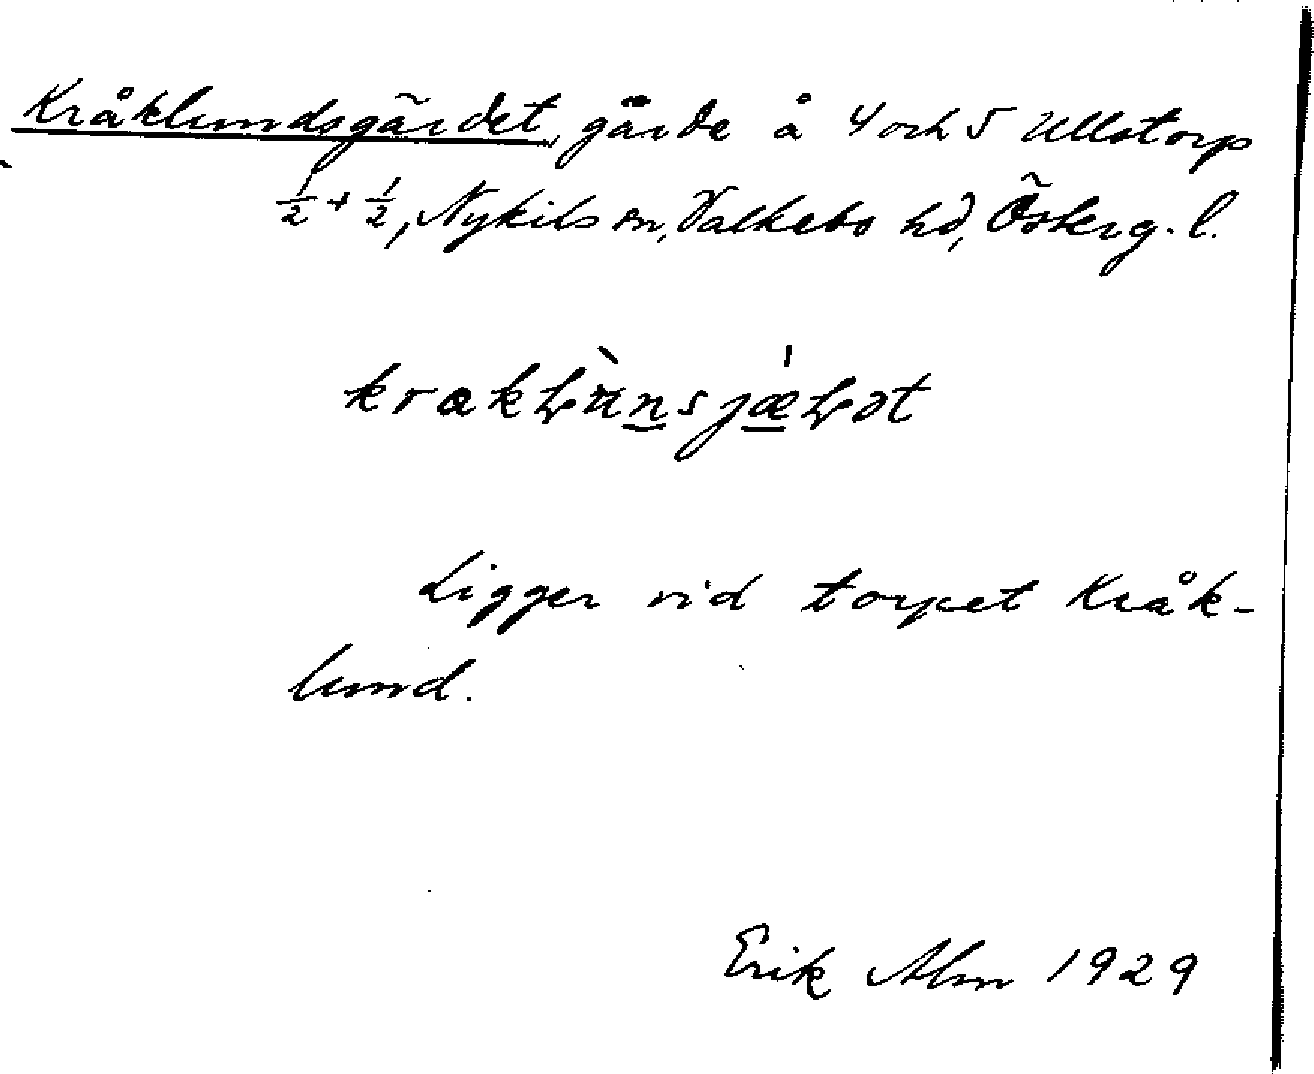 Kråklundsgärdet, gärde å 4 och 5 Ullstorp
1/2 + 1/2, Nykils sn, Valkebo hd, Österg. l.
Ligger vid torpet Kråk-
lund.
Erik Alm 1929